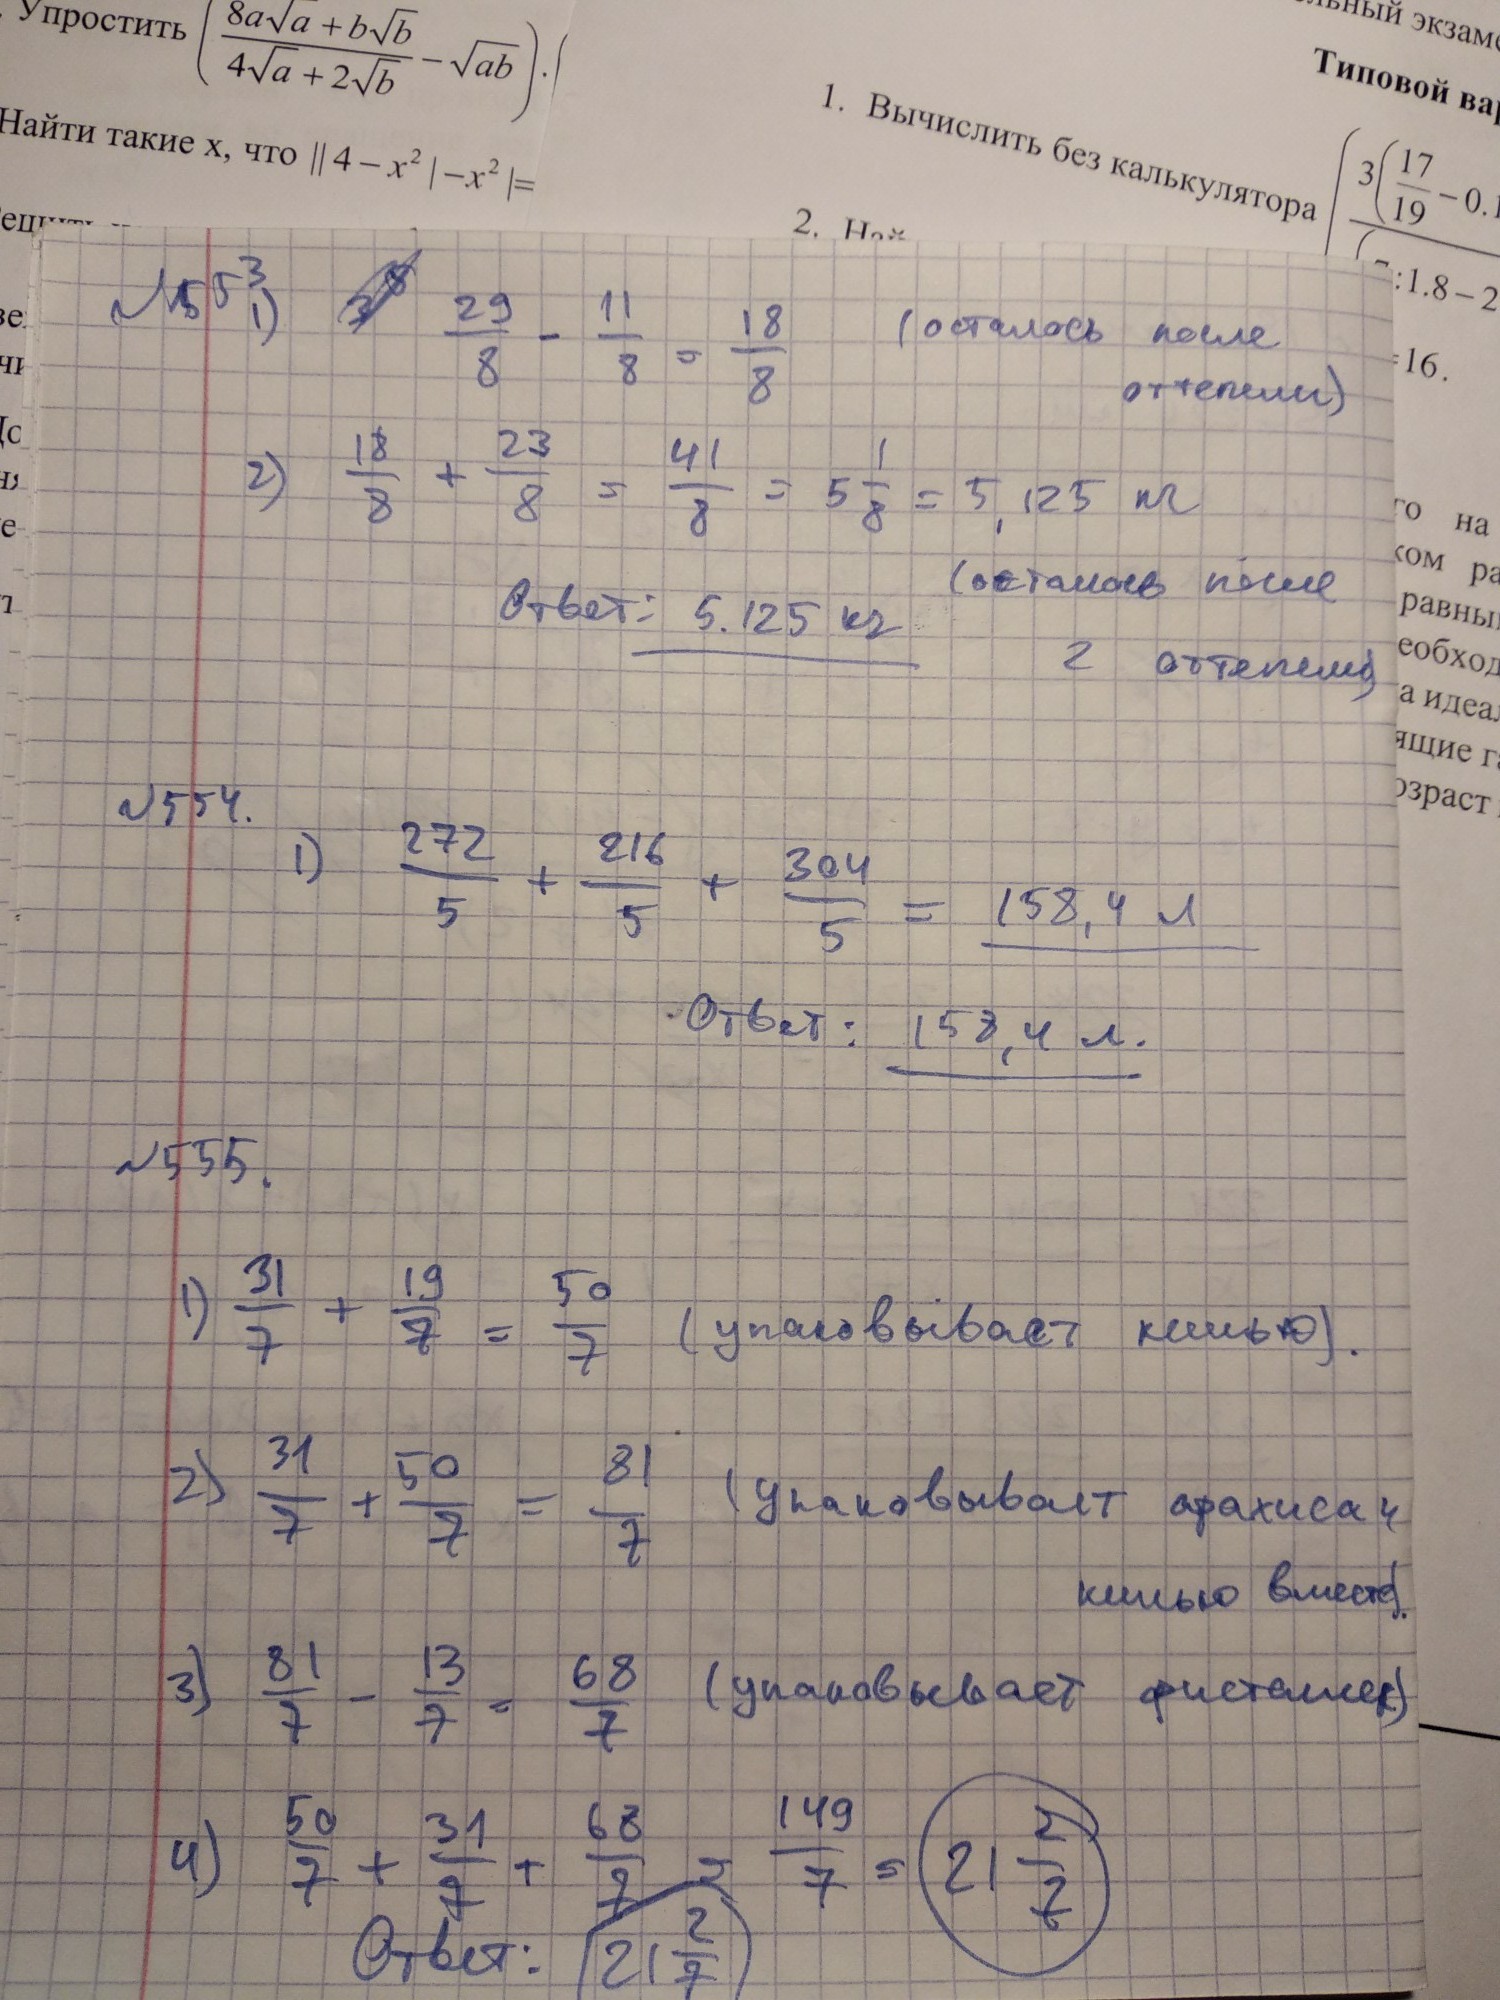 Упростить (8a√a + b√b / 4√a + 2√b − √ab) · (
Найти такие х, что || 4 − x² | −x² |=
льный экзаме
Типовой вар
1. Вычислить без калькулятора (3(17/19 − 0.1
:1.8 − 2
2. Най
=16.
го на
ком ра
равным
еобход
а идеал
ящие га
озраст
№553
1) 29/8 - 11/8 = 18/8 (осталось после
оттепели)
2) 18/8 + 23/8 = 41/8 = 5 1/8 = 5,125 кг
(осталось после
2 оттепели)
Ответ: 5.125 кг
№554.
1) 272/5 + 216/5 + 304/5 = 158,4 л
Ответ: 158,4 л.
№555.
1) 31/7 + 19/7 = 50/7 (упаковывает кешью).
2) 31/7 + 50/7 = 81/7 (упаковывает арахиса и
кешью вместе).
3) 81/7 - 13/7 = 68/7 (упаковывает фисташек)
4) 50/7 + 31/7 + 68/7 = 149/7 = 21 2/7
Ответ: 21 2/7